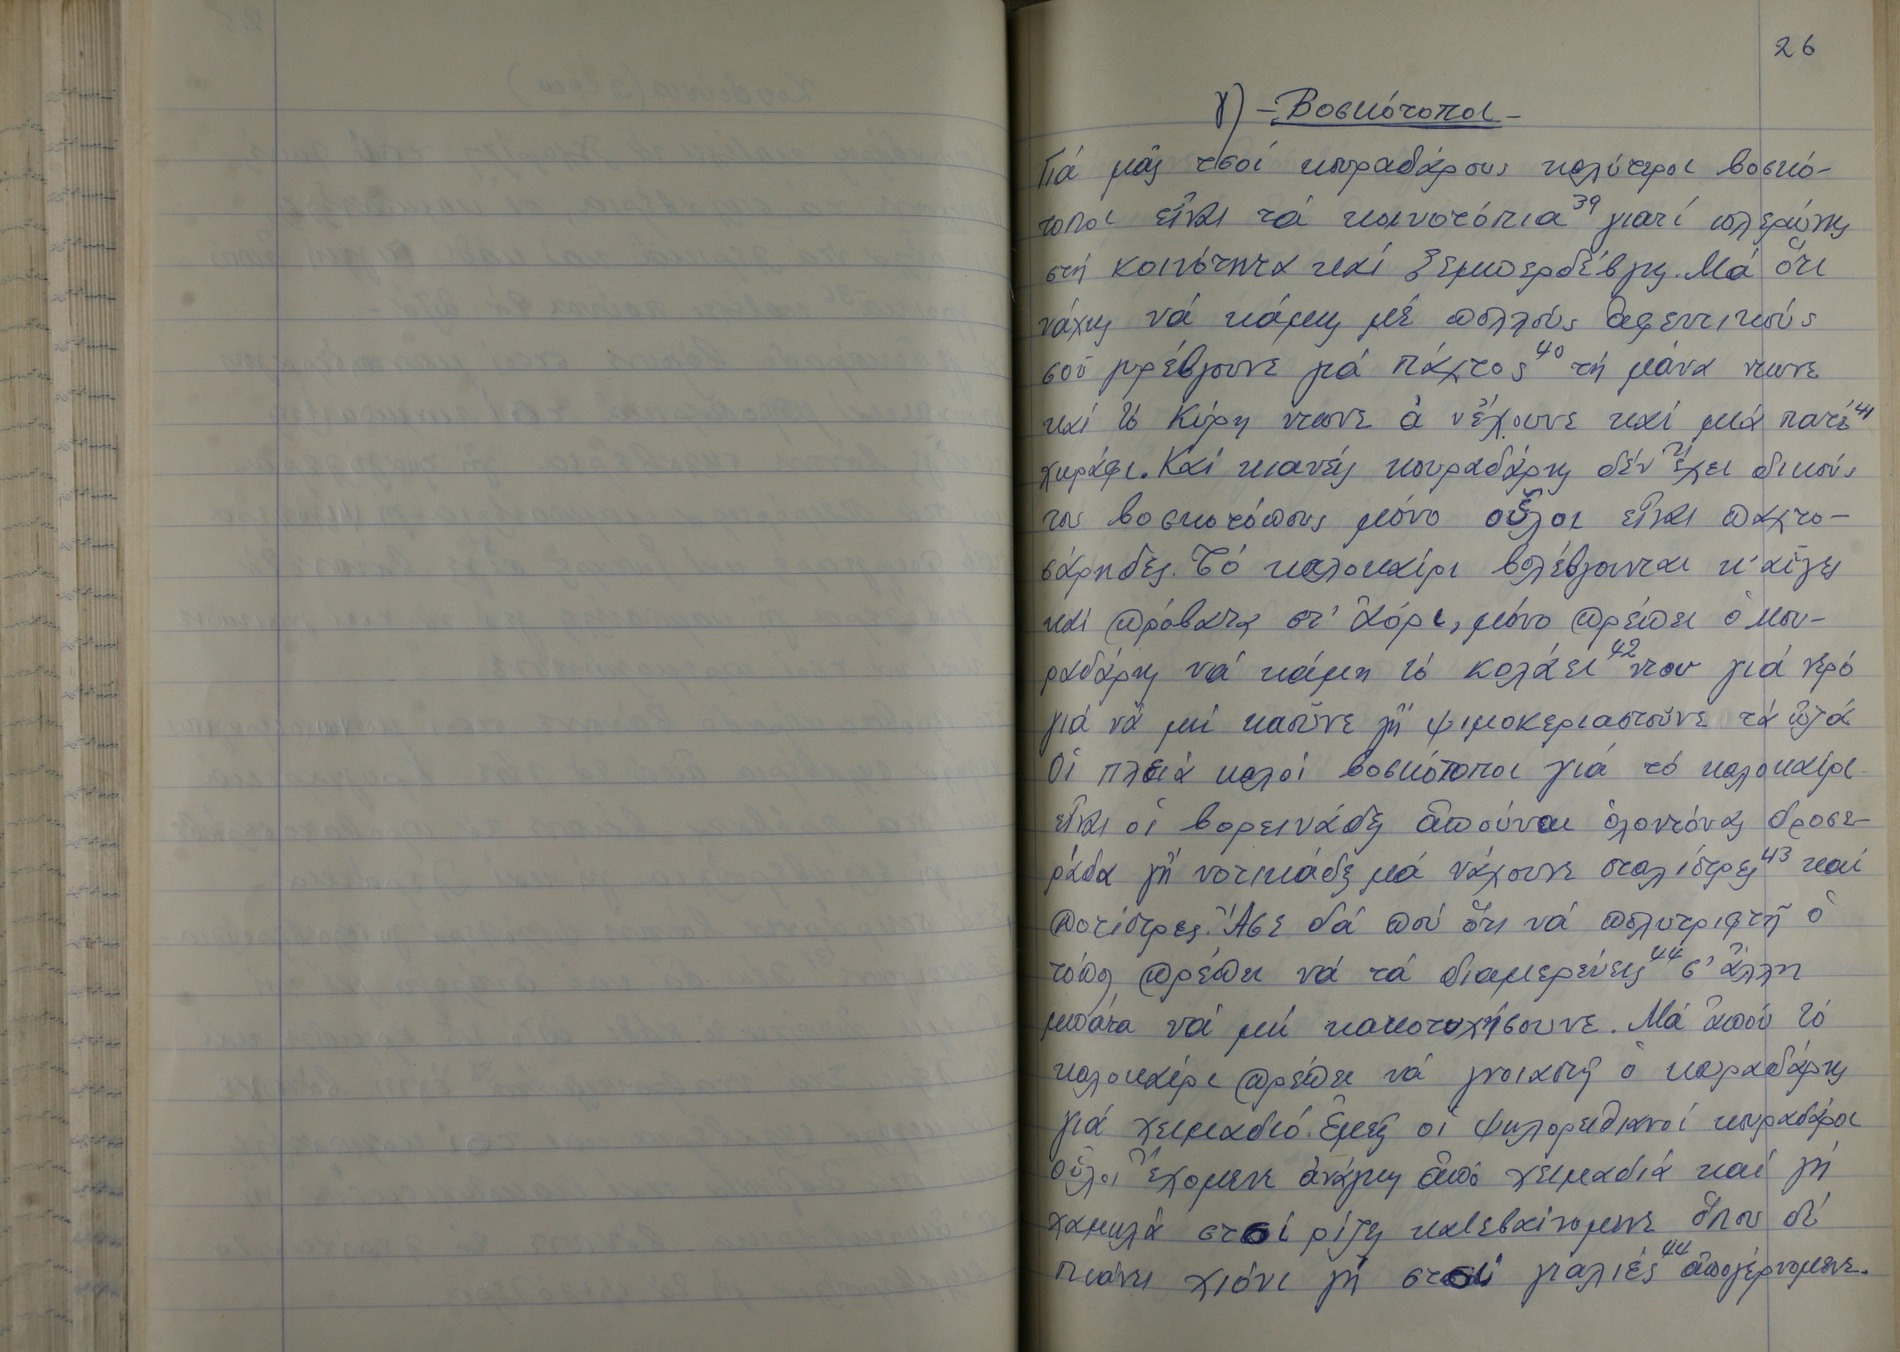 26
γ) - Βοσκότοποι -
Γιά μᾶς τσοί κουραδάρους καλύτεροι βοσκό-
τοποι εἶναι τά κοινοτόπια³⁹ γιατί πλερώνεις
στή κοινότητα καί ξεμπερδέβγεις. Μά ὅτι
νάχῃς νά κάμῃς μέ πολλούς ἀφεντικούς
σοῦ γυρέβγουνε γιά πάχτος⁴⁰ τή μάνα ντωνε
καί τό Κύρη ντωνε ἀ νἔχουνε καί μιά πατέ⁴¹
χωράφι. Καί κιανείς κουραδάρης δέν ἔχει δικούς
του βοσκοτόπους μόνο οὗλοι εἶναι παχτο-
σάρηδες. Τό καλοκαίρι βολέβγουνται κ' αἶγες
καί πρόβατα στ' Ἀόρι, μόνο πρέπει ὁ κου-
ραδάρης νά κάμῃ τό κολάει⁴² ντου γιά νερό
γιά νά μή καοῦνε γῆ ψιμοκεριαστοῦνε τά ὀζά
Οἱ πλειά καλοί βοσκότοποι γιά τό καλοκαίρι
εἶναι οἱ βορεινάδες ἀποὖναι ὁλοντόνας δροσε-
ράδα γῆ νοτικάδες μά νάχουνε σταλίστρες⁴³ καί
ποτίστρες. Ἄσε δά πού ὅτι νά πολυτριφτῆ ὁ
τόπος πρέπει νά τά διαμερεύεις⁴⁴ σ' ἄλλη
μπάτα νά μή κακοτυχήσουνε. Μά ἀπού τό
καλοκαίρι πρέπει νά γνοιαστῆ ὁ κουραδάρης
γιά χειμαδιό. Ἐμεῖς οἱ ψηλορειθιανοί κουραδάροι
οὗλοι ἔχομενε ἀνάγκη ἀπό χειμαδιά καί γή
χαμηλά στσί ρίζες κατεβαίνομενε ὅπου δέ
πιάνει χιόνι γή στσί γιαλιές⁴⁴ ἀπογέρνομενε.